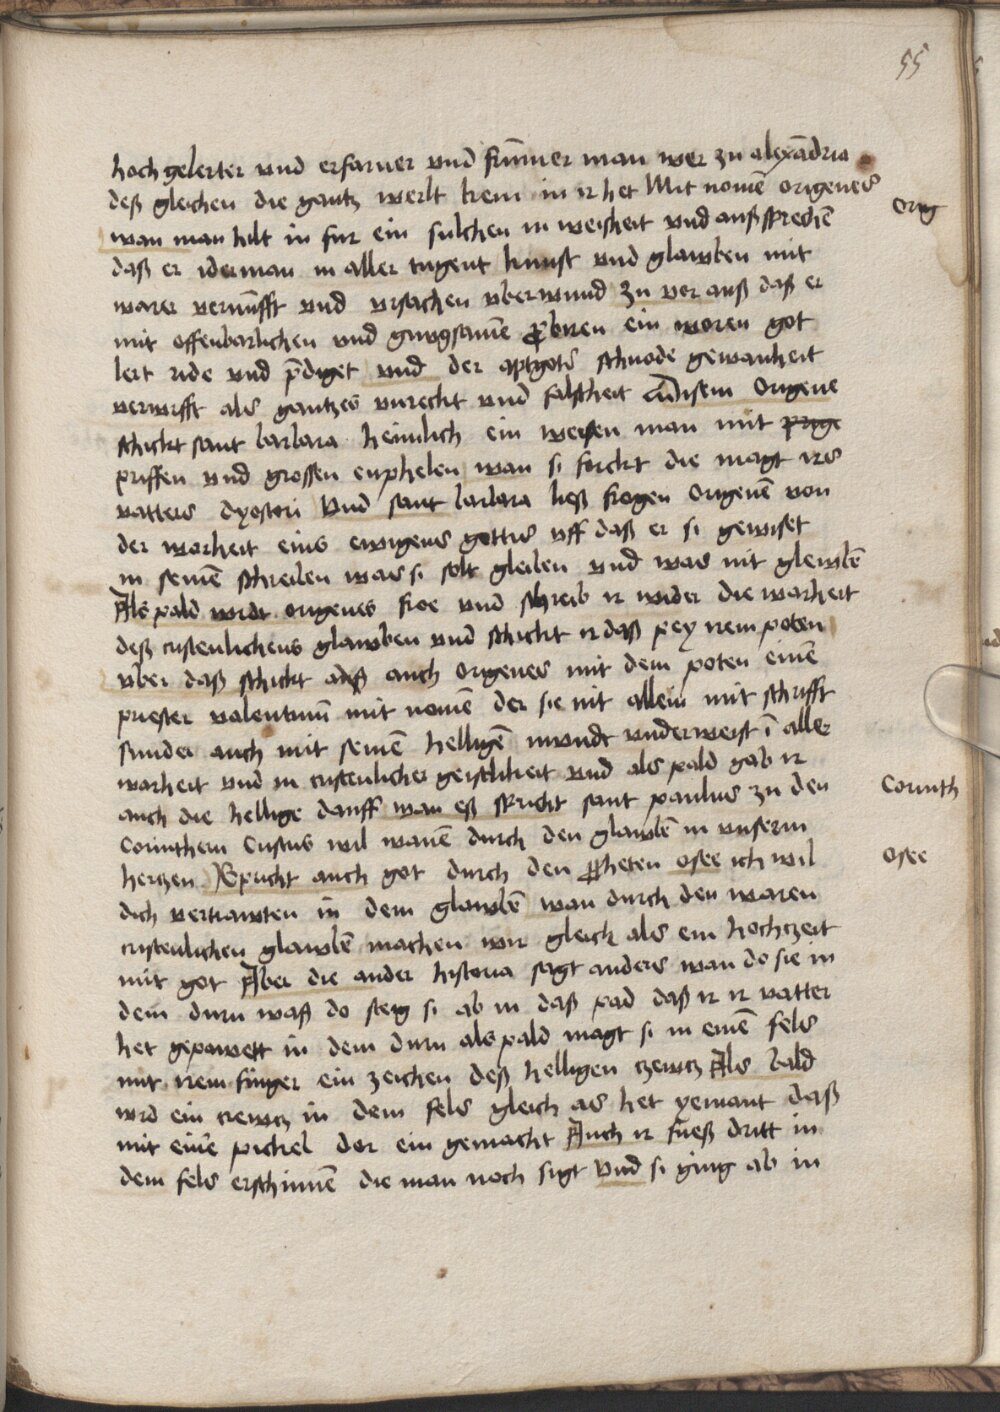 55
hoch gelerter vnd erfarner vnd frümer man wer zu alexādria
deß gleichen die gantz werlt kein in ir het Mit nomē origenes
orig
wan man hilt in fur ein sulchen in weisheit vnd außsprechē
daß er iderman in aller tugent kunst vnd glawben mit
warer vernūfft vnd vrsachen vberwund zu vor auß daß er
mit offenbarlichen vnd gnugsamē ꝓbiren ein woren got
lert ride vnd p̄diget vnd der aptgotē schnode gewanheit
verwirfft als gantzes vnrecht vnd falscheit disem Origene
schickt sant barbara heimlich ein weisen man mit
priffen vnd grossen enphelen wan si forcht die magt irs
vatters dyoscori Vnd sant barbara ließ frogen Origenē von
der worheit eins ewigens gottis vff daß er si gewiset
in seinē schreiben was si solt gleiben vnd was nit glewbē
Als pald wirdt origenes froe vnd schreib ir wider die warheit
deß cristenlichens glawben vnd schickt ir daß pey irem poten
vber daß schickt auch Origenes mit dem poten einē
priester valentinum mit nomē der sie nit allein mit schrifft
sunder auch mit seinē helligē mundt vnderweist ī aller
warheit vnd in cristenlicher geistlikeit vnd als pald gab ir
auch die hellige dauff wan eß spricht sant paulus zu den
Corinth
Corinthern Cristus wil wanē durch den glawbē in vnserm
hertzen Spricht auch got durch den ꝓheten osee ich wil
osee
dich vertrawten in dem glawbē wan durch den waren
cristenlichen glawbē machen wir gleich als ein hochtzeit
mit got Aber die ander historia sagt anders wan do sie in
dem durn waß do steig si ab in daß pad daß ir ir vatter
het gepawett in dem durn als pald magt si in einē fels
mit irem finger ein zeichen deß helligen creutz Als bald
wrd ein crewtz in dem fels gleich as het yemant daß
mit einē pickel dor ein gemacht Auch ir fueß dritt in
dem fels erschinnē die man noch sigt Vnd si ging ab in